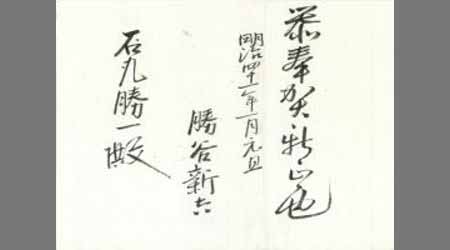 恭奉賀新正也
明治四十一年一月元旦
勝谷新六
石丸勝一殿